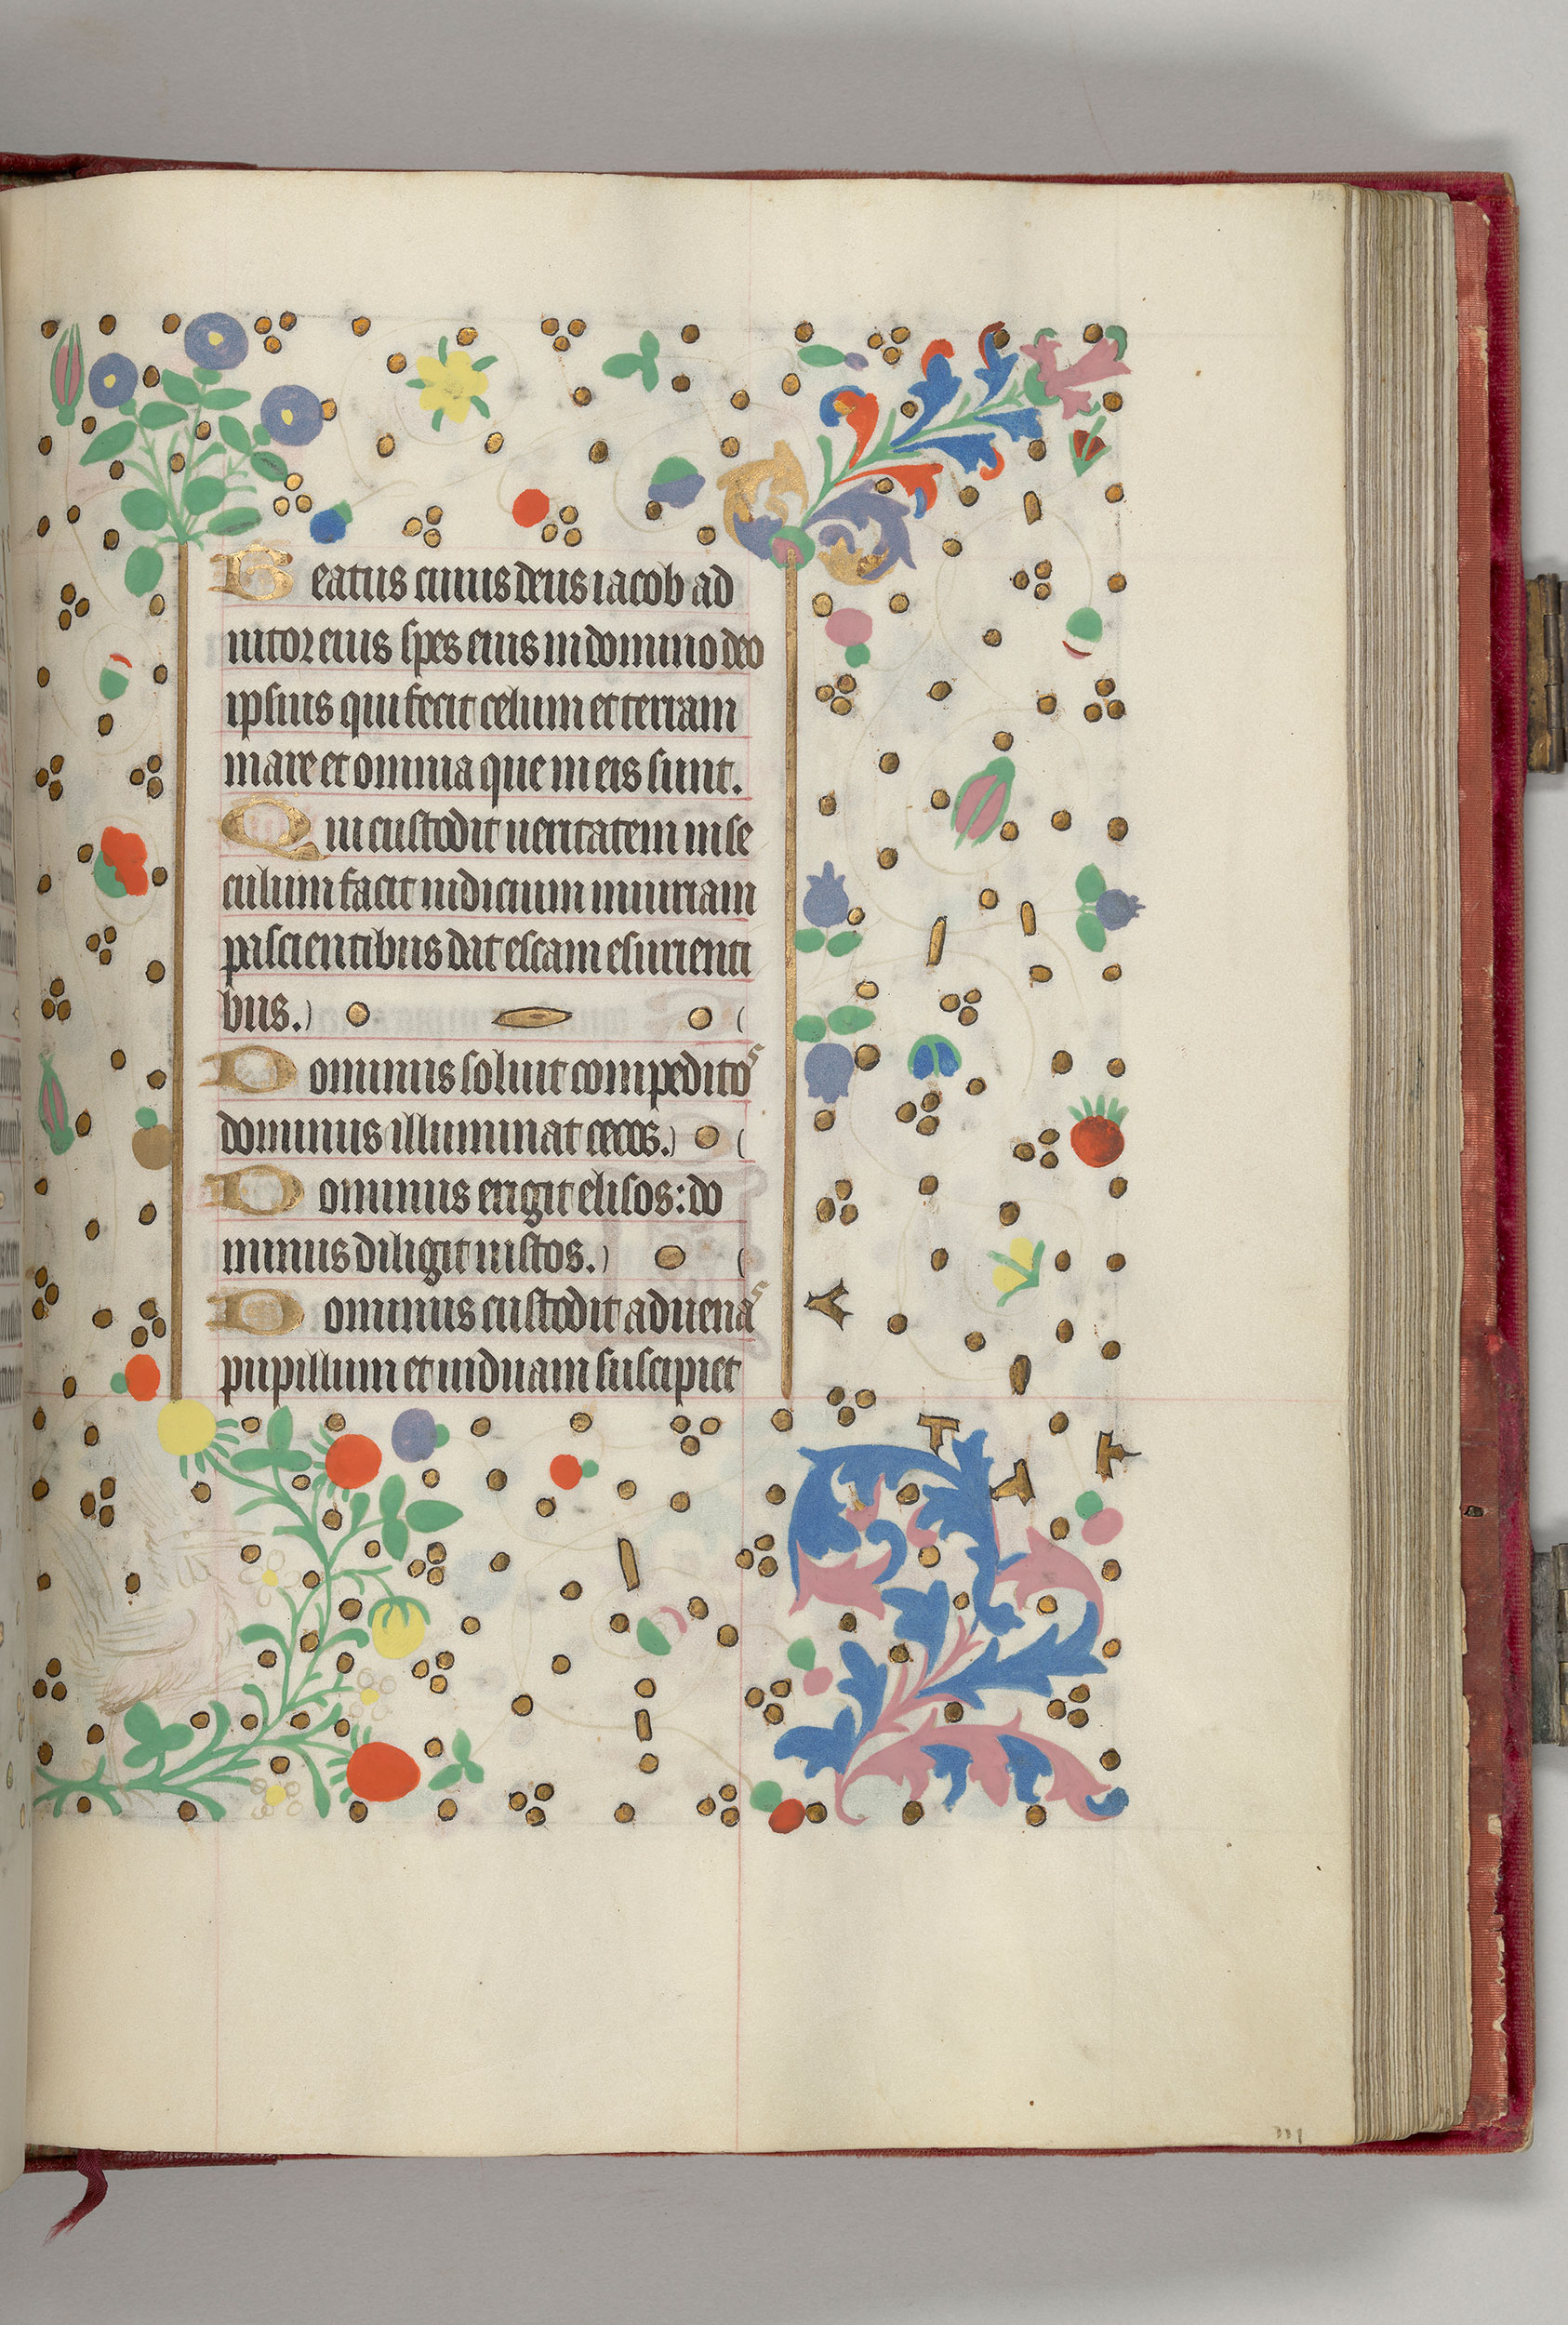 Beatus cuius deus iacob ad
iutor eius spes eius in domino deo
ipsius qui fecit celum et terram
mare et omnia que in eis sunt.
Qui custodit ueritatem in se
culum facit iudicium iniuriam
pascientibus dat escam esurienti
bus.
Dominus soluit compeditos
dominus illuminat cecos.
Dominus erigit elisos: do
minus diligit iustos.
Dominus custodit aduenas
pupillum et uiduam suscipiet